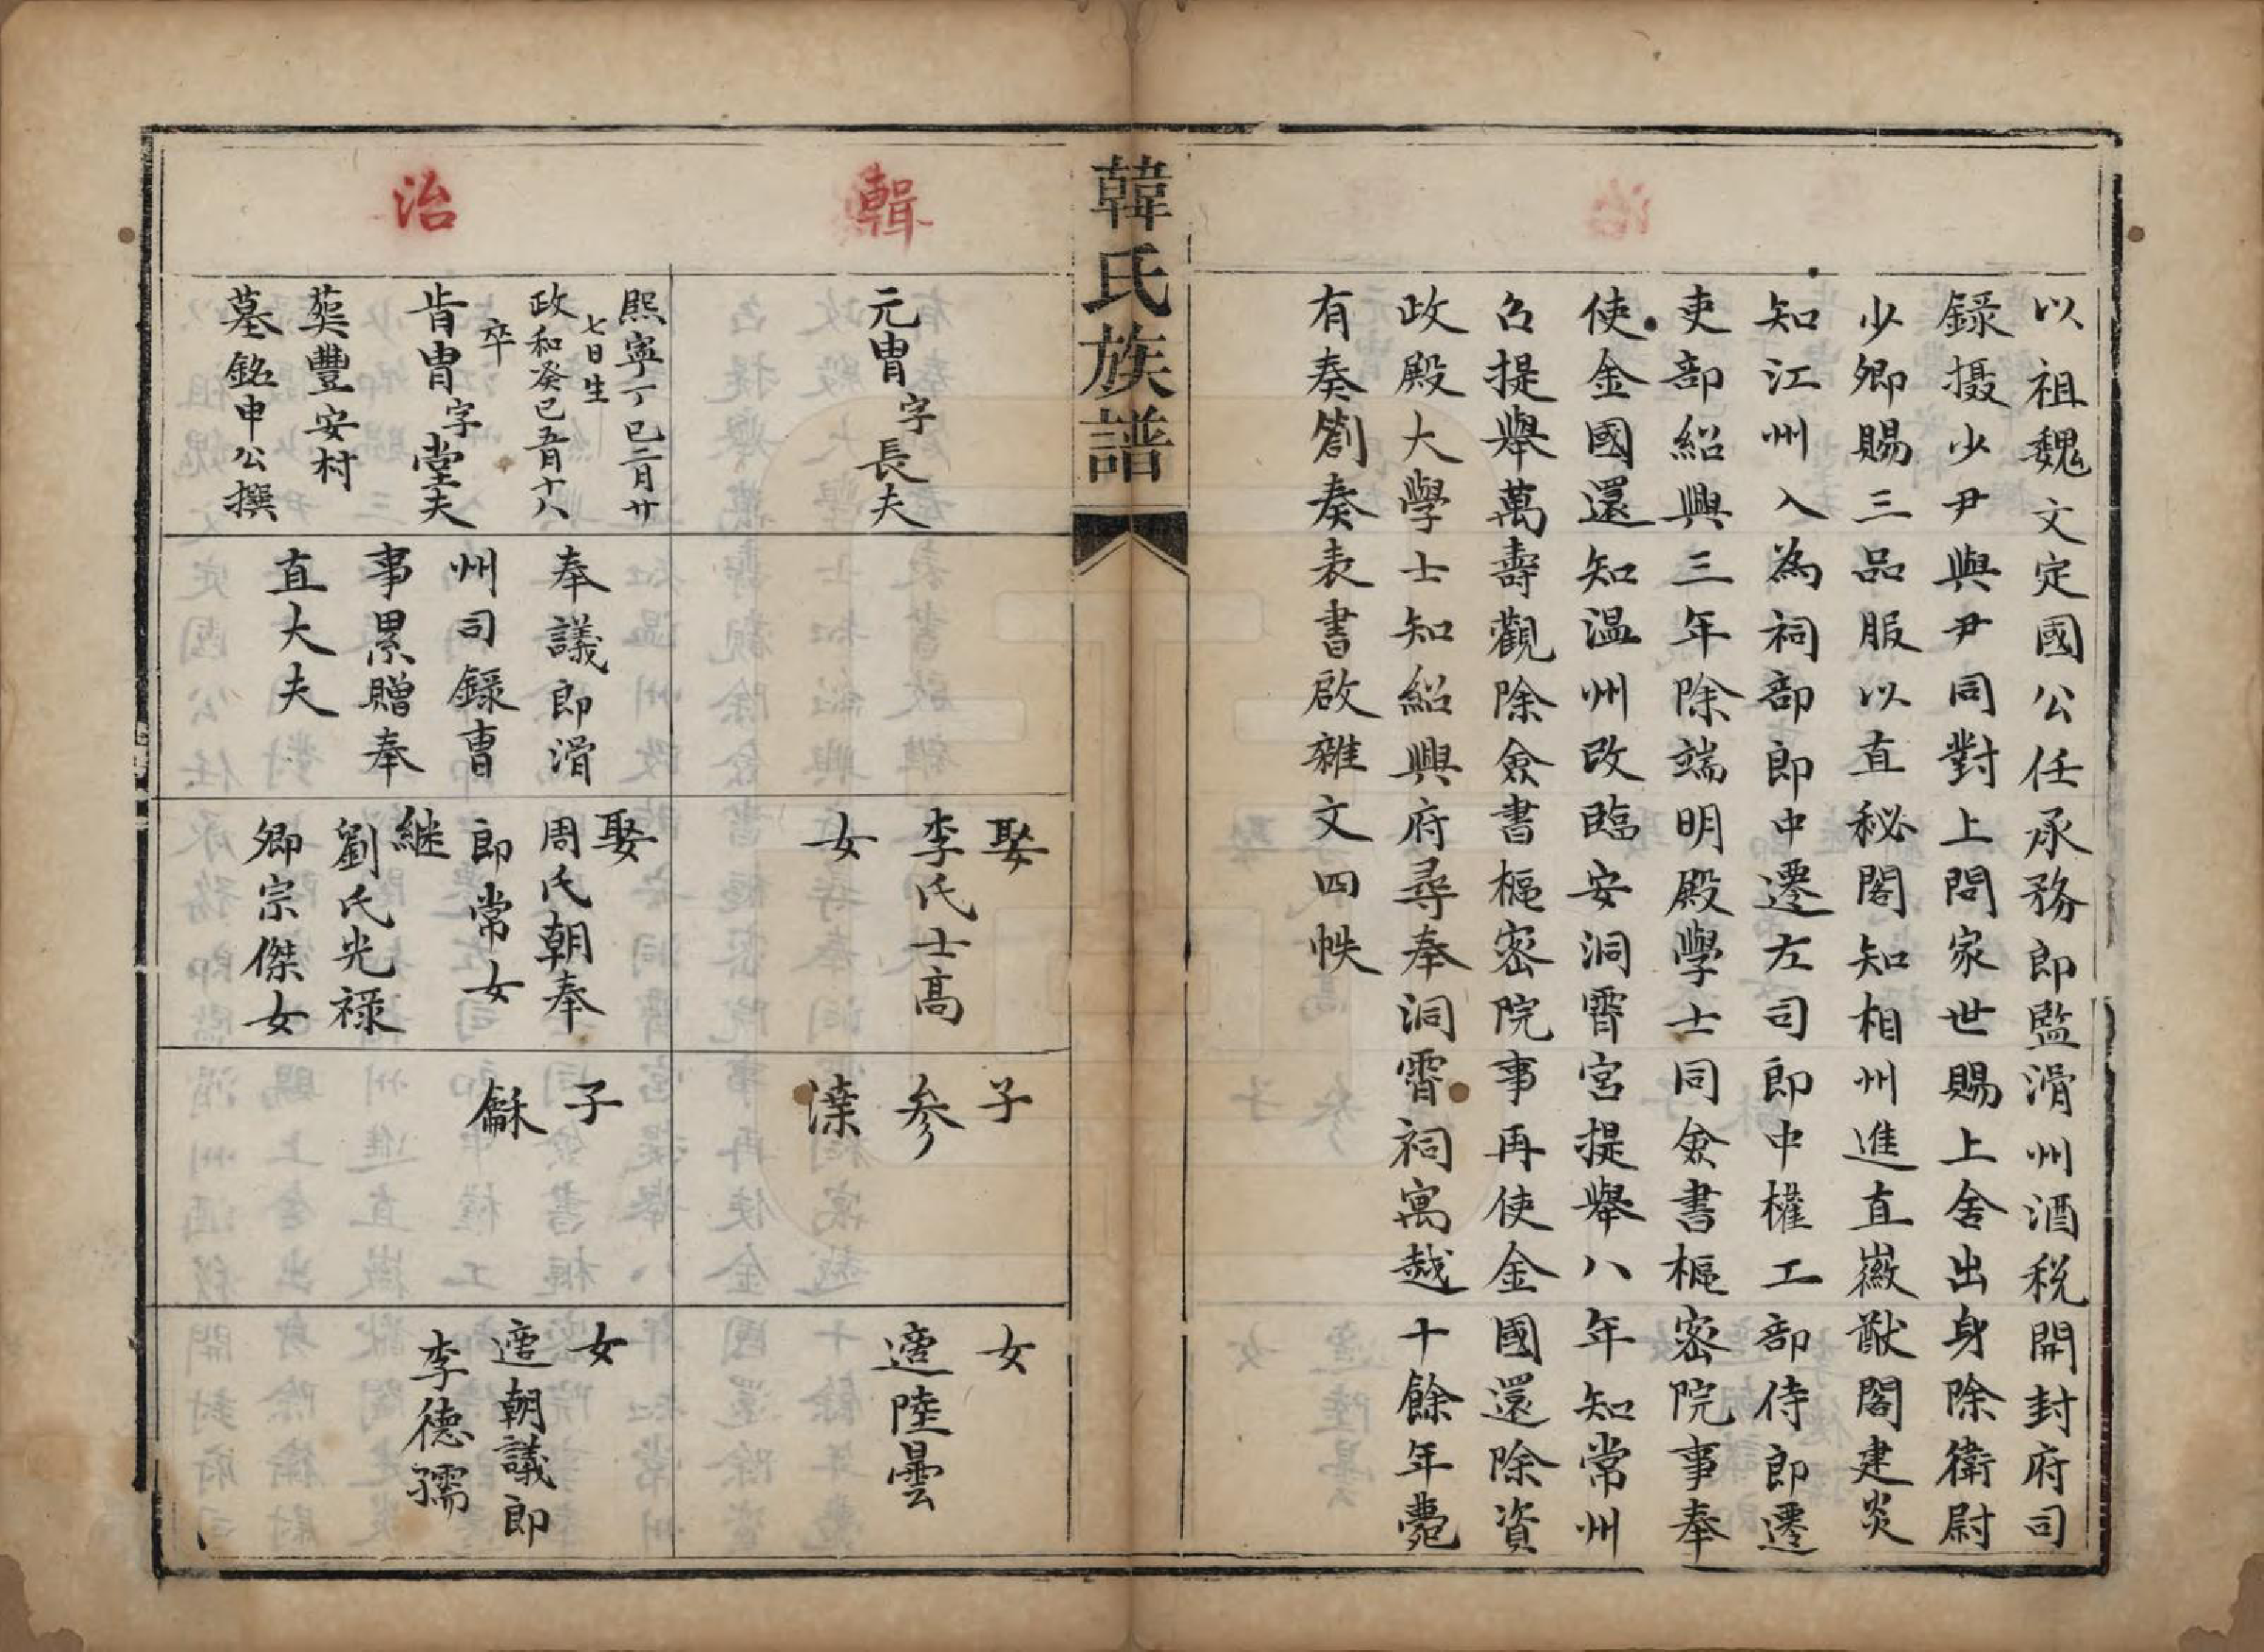 以祖魏文定國公任承務郎監滑州酒稅開封府司
錄攝少尹與尹同對上問家世賜上舍出身除衛尉
少卿賜三品服以直秘閣知相州進直徽猷閣建炎
知江州入為祠部郎中遷左司郎中權工部侍郎遷
吏部紹興三年除端明殿學士同僉書樞密院事奉
使金國還知溫州改臨安洞霄宮提舉八年知常州
召提舉萬壽觀除僉書樞密院事再使金國還除資
政殿大學士知紹興府尋奉洞霄祠寓越十餘年薨
有奏劄奏表書啟雜文四帙
韓氏族譜
輯
元胄字長夫
娶
李氏士高
女
子
參
女
適陸曇
治
熙寧丁巳二月廿
七日生
政和癸巳五月十八
卒
肯胄字堂夫
葬豐安村
墓銘申公撰
奉議郎滑
州司錄曹
事累贈奉
直大夫
娶
周氏朝奉
郎常女
繼
劉氏光祿
卿宗傑女
子
龢
女
適朝議郎
李德孺